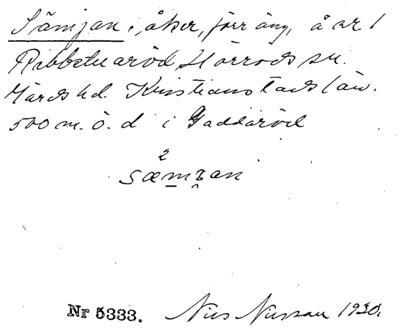 Sämjan, åker, förr äng, å nr 1
Ribbetuaröd, Hörrods sn.
Gärds hd. Kristianstads län.
500 m. ö. d i Gaddaröd
2
sæmjan
Nr 5333. Nils Nilsson 1930.